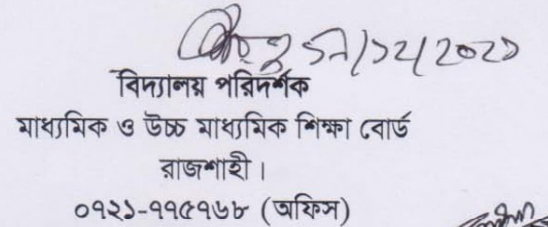 ১২/২০২১
বিদ্যালয় পরিদর্শক
মাধ্যমিক ও উচ্চ মাধ্যমিক শিক্ষা বোর্ড
রাজশাহী।
০৭২১-৭৭৫৭৬৮ (অফিস)